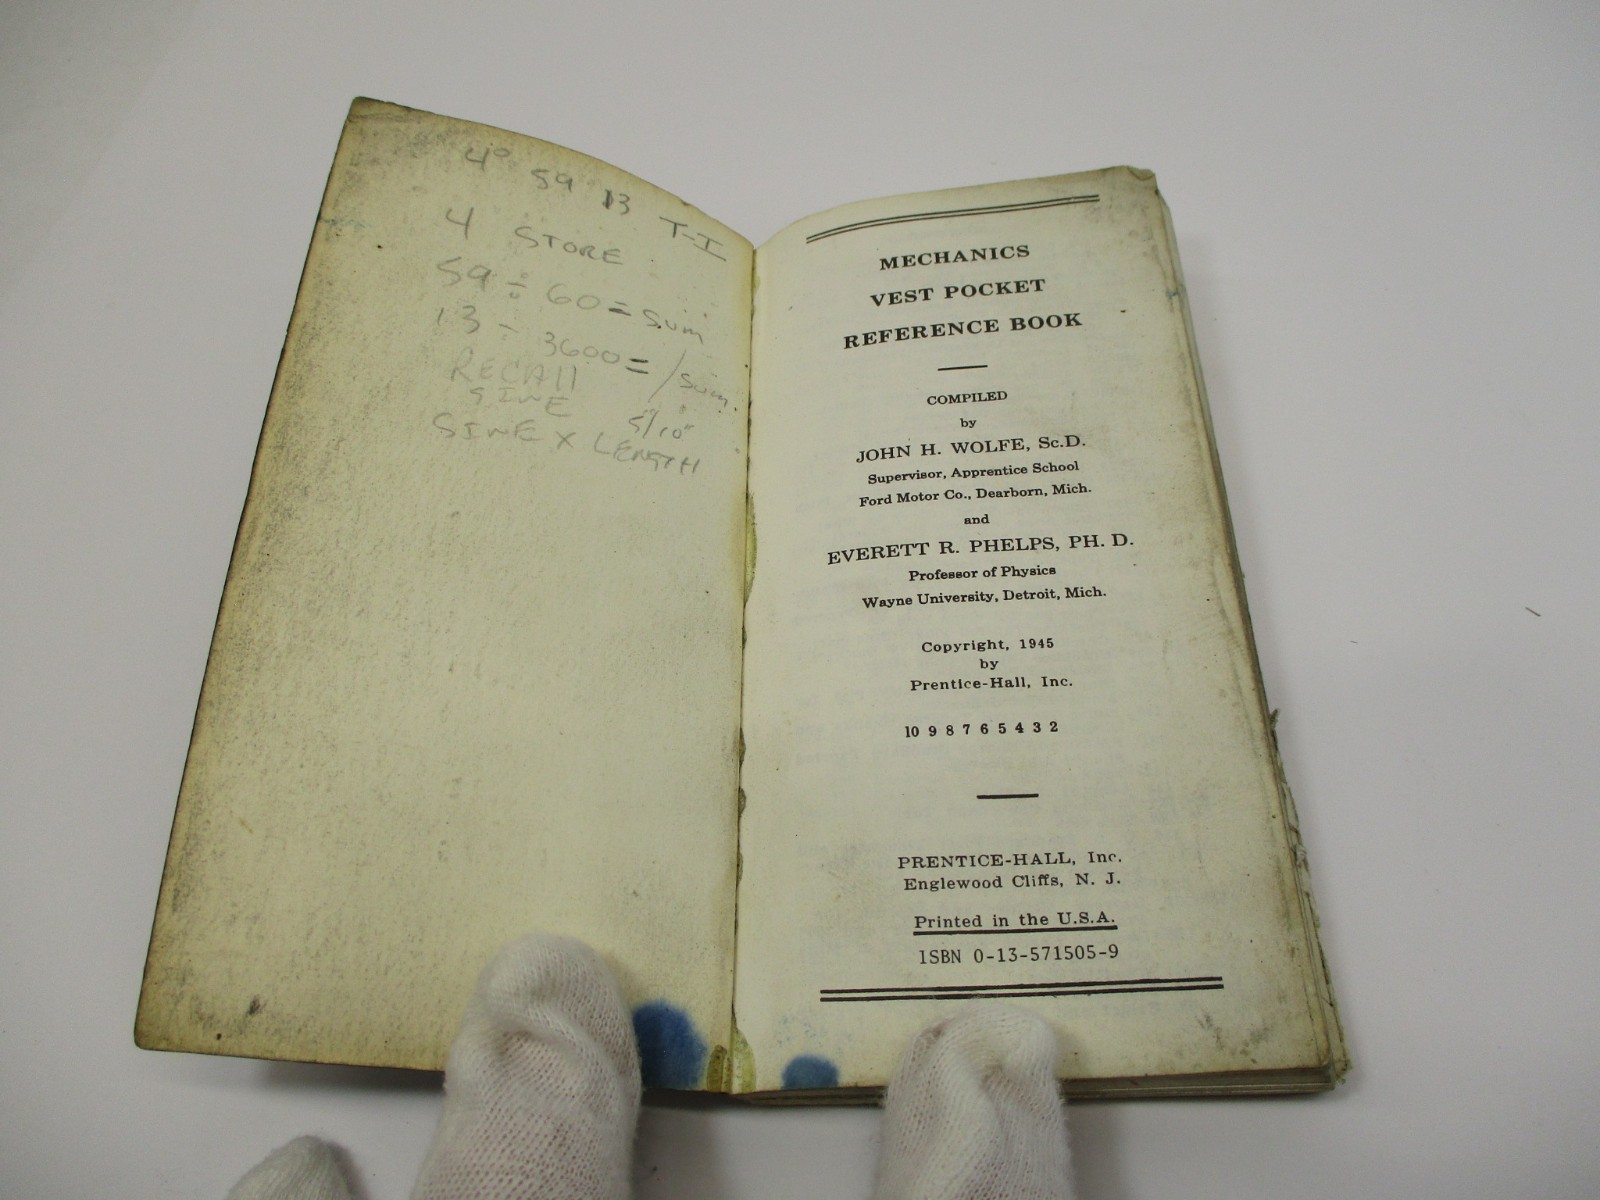 4° 59 13 T-I
4 STORE
59 ÷ 60 = Sum
13 ÷ 3600 = / Sum.
RECAll
SINE
5/10"
SINE X LENGTH
MECHANICS
VEST POCKET
REFERENCE BOOK
COMPILED
by
JOHN H. WOLFE, Sc.D.
Supervisor, Apprentice School
Ford Motor Co., Dearborn, Mich.
and
EVERETT R. PHELPS, PH. D.
Professor of Physics
Wayne University, Detroit, Mich.
Copyright, 1945
by
Prentice-Hall, Inc.
10 9 8 7 6 5 4 3 2
PRENTICE-HALL, Inc.
Englewood Cliffs, N. J.
Printed in the U.S.A.
ISBN 0-13-571505-9